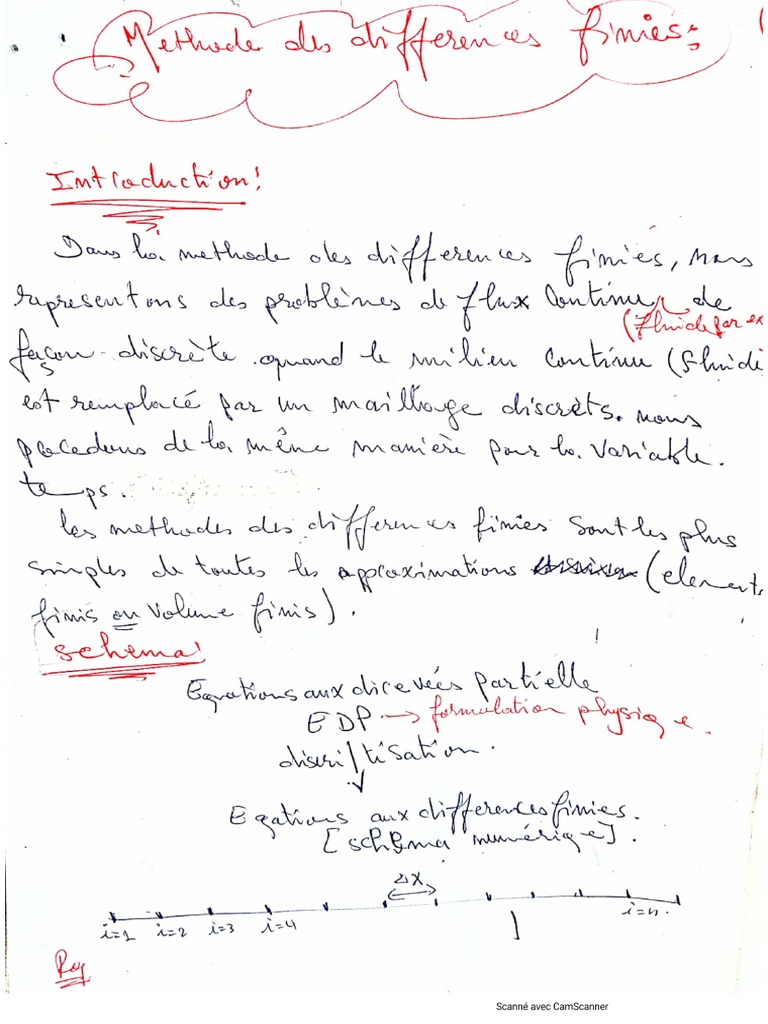 Methode des differences finies:
Introduction:
Dans la methode des differences finies, nous
representons des problèmes de flux continu de
(fluide par ex
façon discrète quand le milieu continue (fluide
est remplacé par un maillage discrèts. nous
procedons de la même manière pour la variable
temps.
les methodes des differences finies sont les plus
simples de toutes les approximations (elements
finis ou volume finis).
schema:
Equations aux dicevées partielle
EDP → formulation physique.
discritisation.
Eqations aux differences finies.
[schéma numérique].
Δx
i=1 i=2 i=3 i=4 i=n.
Rq
Scanné avec CamScanner